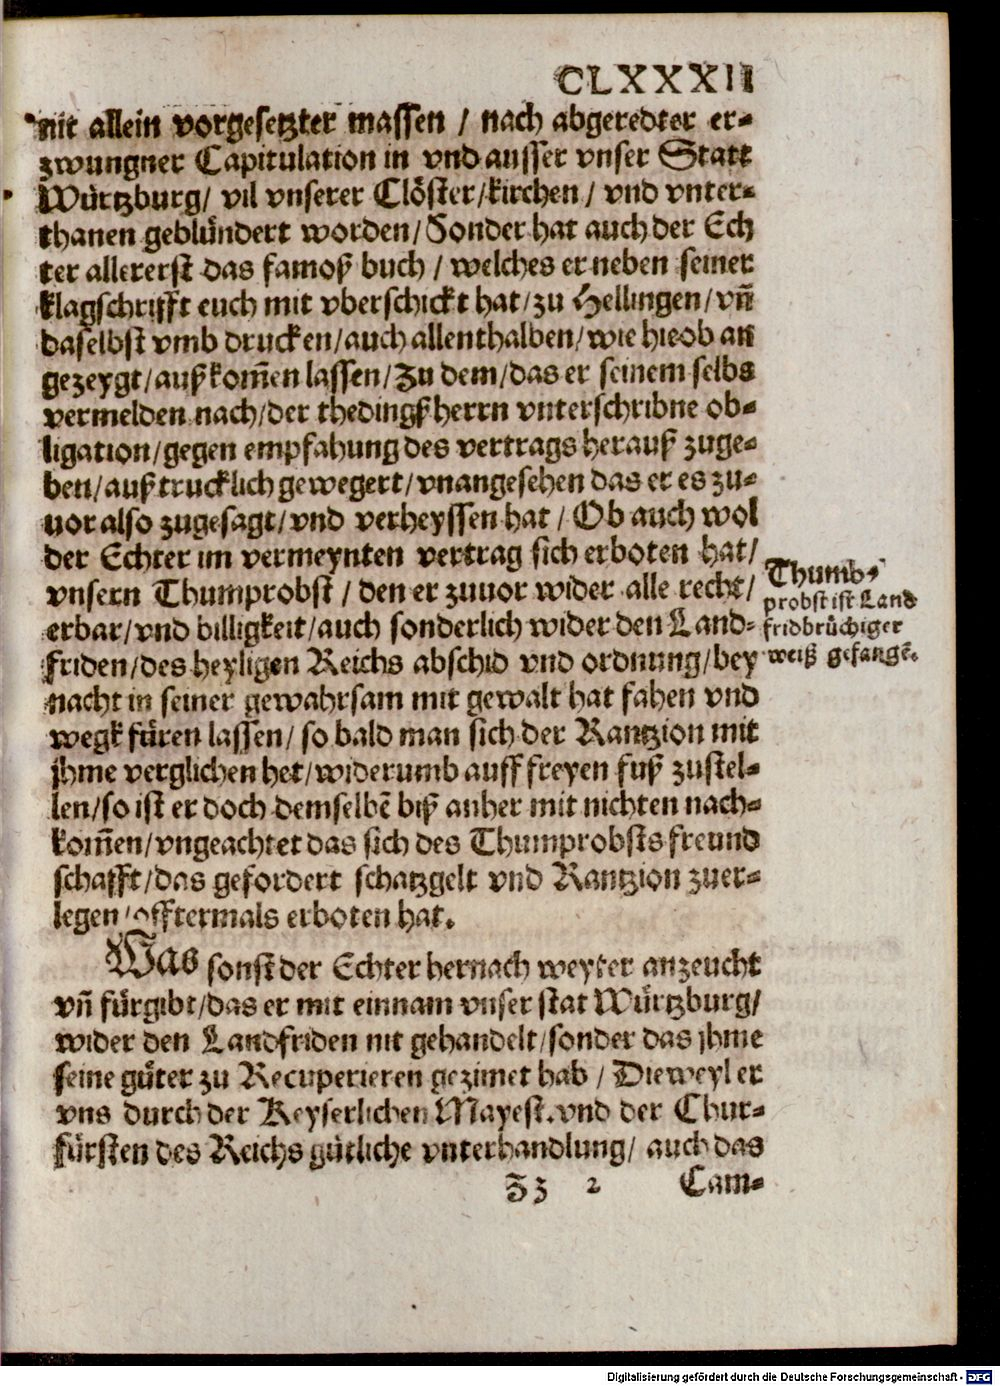 CLXXXII
nit allein vorgesetzter massen / nach abgeredter er-
zwungner Capitulation in vnd ausser vnser Statt
Würtzburg / vil vnserer Clöster / kirchen / vnd vnter-
thanen geblündert worden / Sonder hat auch der Ech
ter allererst das famoß buch / welches er neben seiner
klagschrifft euch mit vberschickt hat / zu Hellingen / vñ
daselbst vmb drucken / auch allenthalben / wie hieob an
gezeygt / außkom̃en lassen / Zu dem / das er seinem selbs
vermelden nach / der thedingßherrn vnterschribne ob-
ligation / gegen empfahung des vertrags herauß zuge-
ben / außtrucklich gewegert / vnangesehen das er es zu-
uor also zugesagt / vnd verheyssen hat / Ob auch wol
der Echter im vermeynten vertrag sich erboten hat /
vnsern Thumprobst / den er zuuor wider alle recht /
erbar / vnd billigkeit / auch sonderlich wider den Land-
friden / des heyligen Reichs abschid vnd ordnung / bey
nacht in seiner gewahrsam mit gewalt hat fahen vnd
wegk füren lassen / so bald man sich der Rantzion mit
jhme verglichen het / widerumb auff freyen fuß zustel-
len / so ist er doch demselbẽ biß anher mit nichten nach-
kom̃en / vngeachtet das sich des Thumprobsts freund
schafft / das gefordert schatzgelt vnd Rantzion zuer-
legen / offtermals erboten hat.
Thumb-
probst ist Land
fridbrüchiger
weiß gefangẽ.
Was sonst der Echter hernach weyter anzeucht
vñ fürgibt / das er mit einnam vnser stat Würtzburg /
wider den Landfriden nit gehandelt / sonder das jhme
seine güter zu Recuperieren gezimet hab / Dieweyl er
vns durch der Keyserlichen Mayest. vnd der Chur-
fürsten des Reichs gütliche vnterhandlung / auch das
Zz 2 Cam-
Digitalisierung gefördert durch die Deutsche Forschungsgemeinschaft - DFG